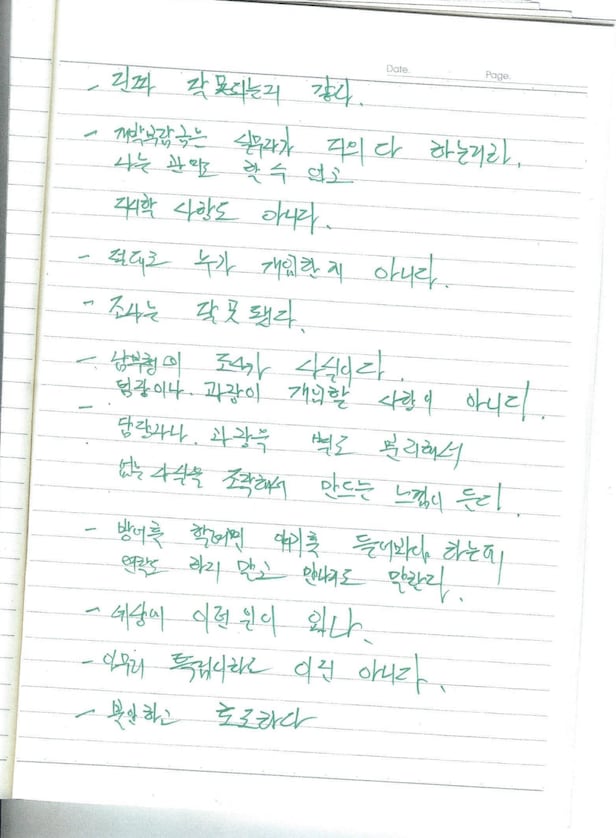 Date. Page.
- 진짜 잘못되는거 같다.
- 개막복합국은 실무자가 거의 다 하는거라,
나는 관여도 할 수 없고
대상 사항도 아니다.
- 절대로 누가 개입한지 아니다.
- 조사는 잘못됐다.
- 남부청의 조사가 사실이다.
팀장이나 과장이 개입할 사항이 아니다.
- 담당자나, 과장을 별도 분리해서
없는 사실을 조작해서 만드는 느낌이 든다.
- 방어를 할려면 얘기를 들어봐야 하는데
연락도 하지 말고 만나지도 말란다.
- 세상에 이런일이 있나.
- 아무리 특검이라도 이건 아니다.
- 불안하고 초조하다